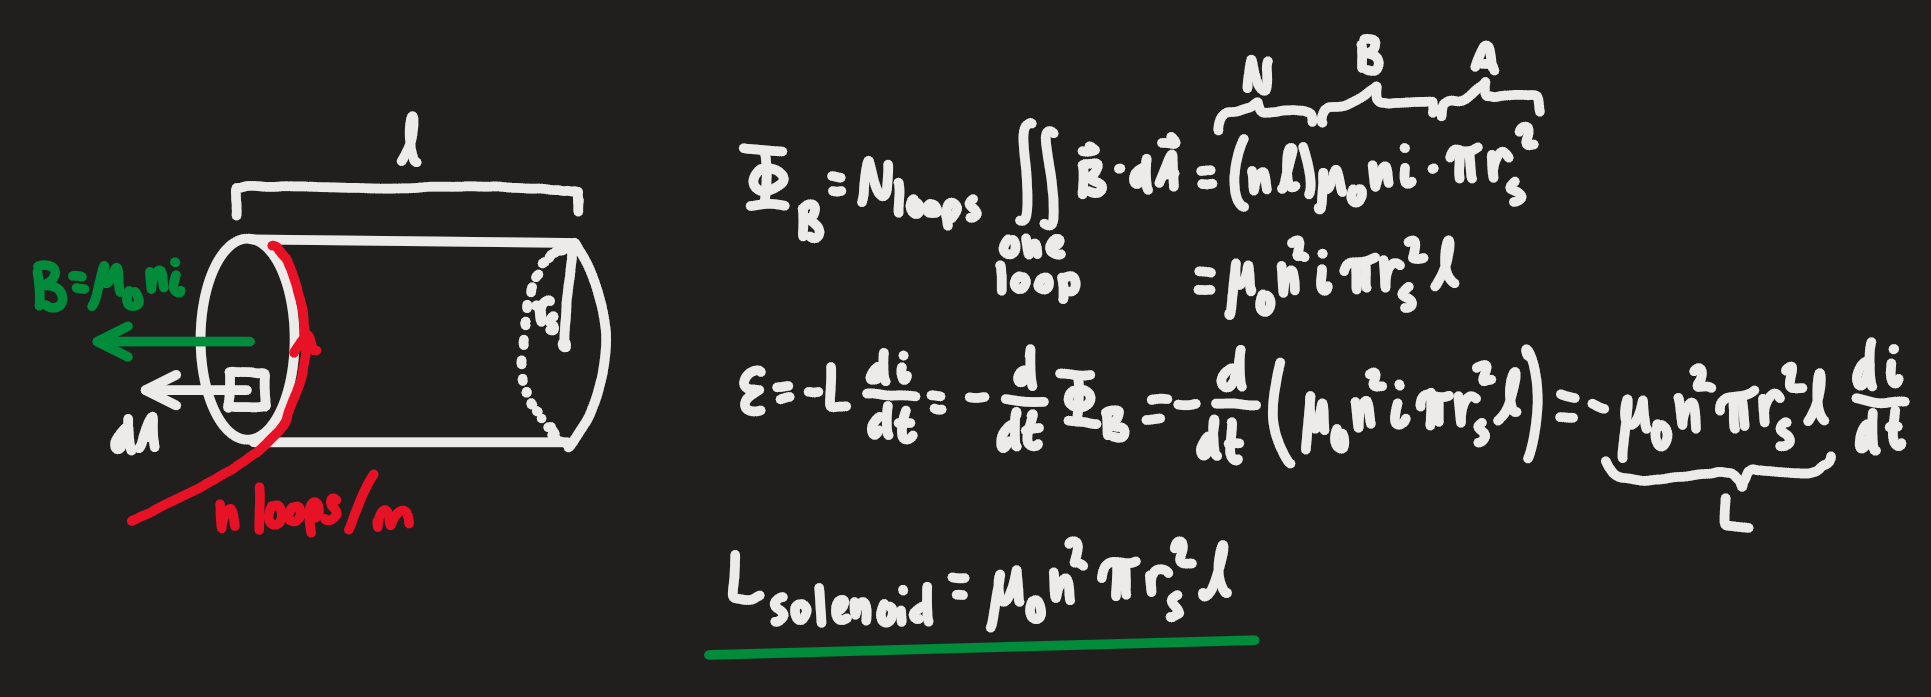 l
B=μ₀ni
dA
n loops/m
r_s
N B A
Φ_B = N_loops ∬_one loop B⃗·dA⃗ = (nl)μ₀ni·πr_s²
= μ₀n²iπr_s²l
ε = -L di/dt = - d/dt Φ_B = - d/dt (μ₀n²iπr_s²l) = -μ₀n²πr_s²l di/dt
L
L_solenoid = μ₀n²πr_s²l